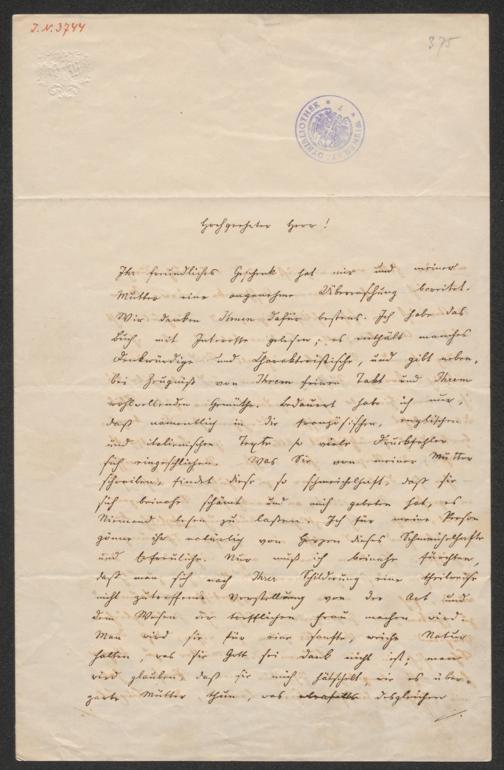 J. N. 3744
375
WIENER STADTBIBLIOTHEK
Hochgeehrter Herr!
Ihr freundliches Geschenk hat mir und meiner
Mutter eine angenehme Überraschung bereitet.
Wir danken Ihnen dafür bestens. Ich habe das
Buch mit Interesse gelesen; es enthält manches
Denkwürdige und Charakteristische, und gibt neben-
bei Zeugniß von Ihrem feinen Takt und Ihrem
wohlwollenden Gemüthe. Bedauert habe ich nur,
daß namentlich in die französischen, englischen
und italienischen Texte so viele Druckfehler
sich eingeschlichen. Was Sie von meiner Mutter
schreiben, findet diese so schmeichelhaft, daß sie
sich beinahe schämt und mich gebeten hat, es
Niemand lesen zu lassen. Ich für meine Person
gönne ihr natürlich von Herzen dieses Schmeichelhafte
und Erfreuliche. Nur muß ich beinahe fürchten,
daß man sich nach Ihrer Schilderung eine theilweise
nicht zutreffende Vorstellung von der Art und
dem Wesen der trefflichen Frau machen wird.
Man wird sie für eine sanfte, weiche Natur
halten, was sie Gott sei Dank nicht ist; man
wird glauben, daß sie mich hätschelt, wie es über-
zarte Mütter thun, was desgleichen